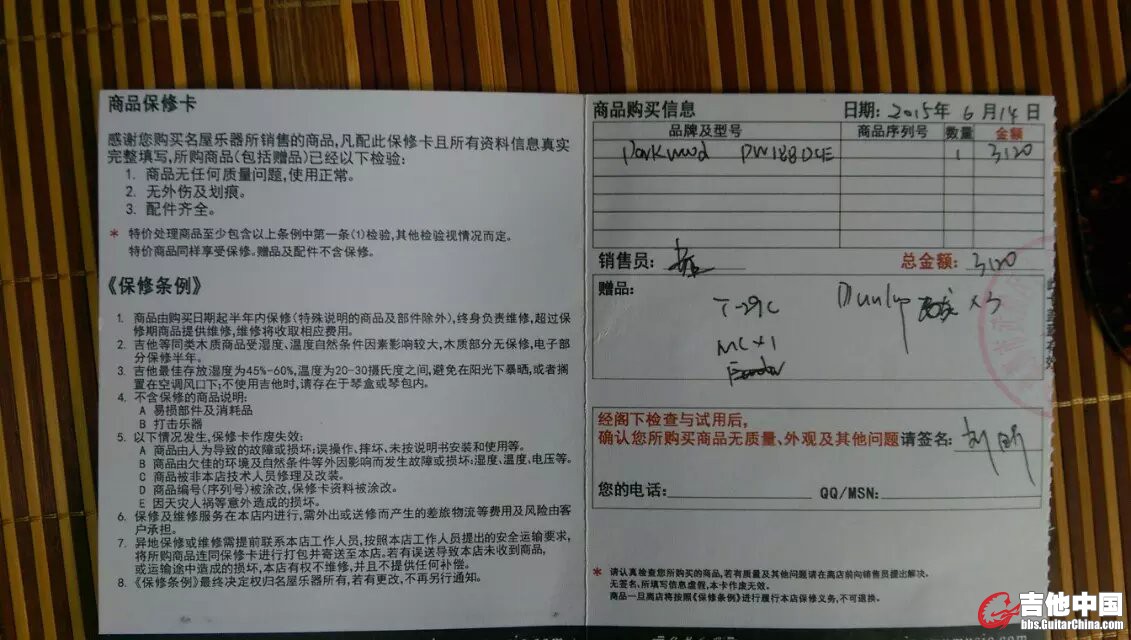 商品保修卡
感谢您购买名屋乐器所销售的商品,凡配此保修卡且所有资料信息真实
完整填写,所购商品(包括赠品)已经以下检验:
1. 商品无任何质量问题,使用正常。
2. 无外伤及划痕。
3. 配件齐全。
* 特价处理商品至少包含以上条例中第一条(1)检验,其他检验视情况而定。
特价商品同样享受保修。赠品及配件不含保修。
《保修条例》
1. 商品由购买日期起半年内保修(特殊说明的商品及部件除外),终身负责维修,超过保
修期商品提供维修,维修将收取相应费用。
2. 吉他等同类木质商品受湿度、温度自然条件因素影响较大,木质部分无保修,电子部
分保修半年。
3. 吉他最佳存放湿度为45%-60%,温度为20-30摄氏度之间,避免在阳光下暴晒,或者搁
置在空调风口下;不使用吉他时,请存在于琴盒或琴包内。
4. 不含保修的商品说明:
A 易损部件及消耗品
B 打击乐器
5. 以下情况发生,保修卡作废失效:
A 商品由人为导致的故障或损坏:误操作、摔坏、未按说明书安装和使用等。
B 商品由欠佳的环境及自然条件等外因影响而发生故障或损坏:湿度、温度、电压等。
C 商品被非本店技术人员修理及改装。
D 商品编号(序列号)被涂改,保修卡资料被涂改。
E 因天灾人祸等意外造成的损坏。
6. 保修及维修服务在本店内进行,需外出或送修而产生的差旅物流等费用及风险由客
户承担。
7. 异地保修或维修需提前联系本店工作人员,按照本店工作人员提出的安全运输要求,
将所购商品连同保修卡进行打包并寄送至本店。若有误送导致本店未收到商品,
或运输途中造成的损坏,本店有权不维修,并且不提供任何补偿。
8. 《保修条例》最终决定权归名屋乐器所有,若有更改,不再另行通知。
商品购买信息 日期: 2015年 6月14日
品牌及型号 商品序列号 数量 金额
Parkwood PW188DCE 1 3120
销售员: 总金额: 3120
赠品: T-29C Dunlup x3
MC x1
经阁下检查与试用后,
确认您所购买商品无质量、外观及其他问题请签名:
您的电话: QQ/MSN:
* 请认真检查您所购买的商品,若有质量及其他问题请在离店前向销售员提出解决。
无签名、所填写信息虚假,本卡作废无效。
商品一旦离店将按照《保修条例》进行履行本店保修义务,不可退换。
吉他中国
bbs.GuitarChina.com